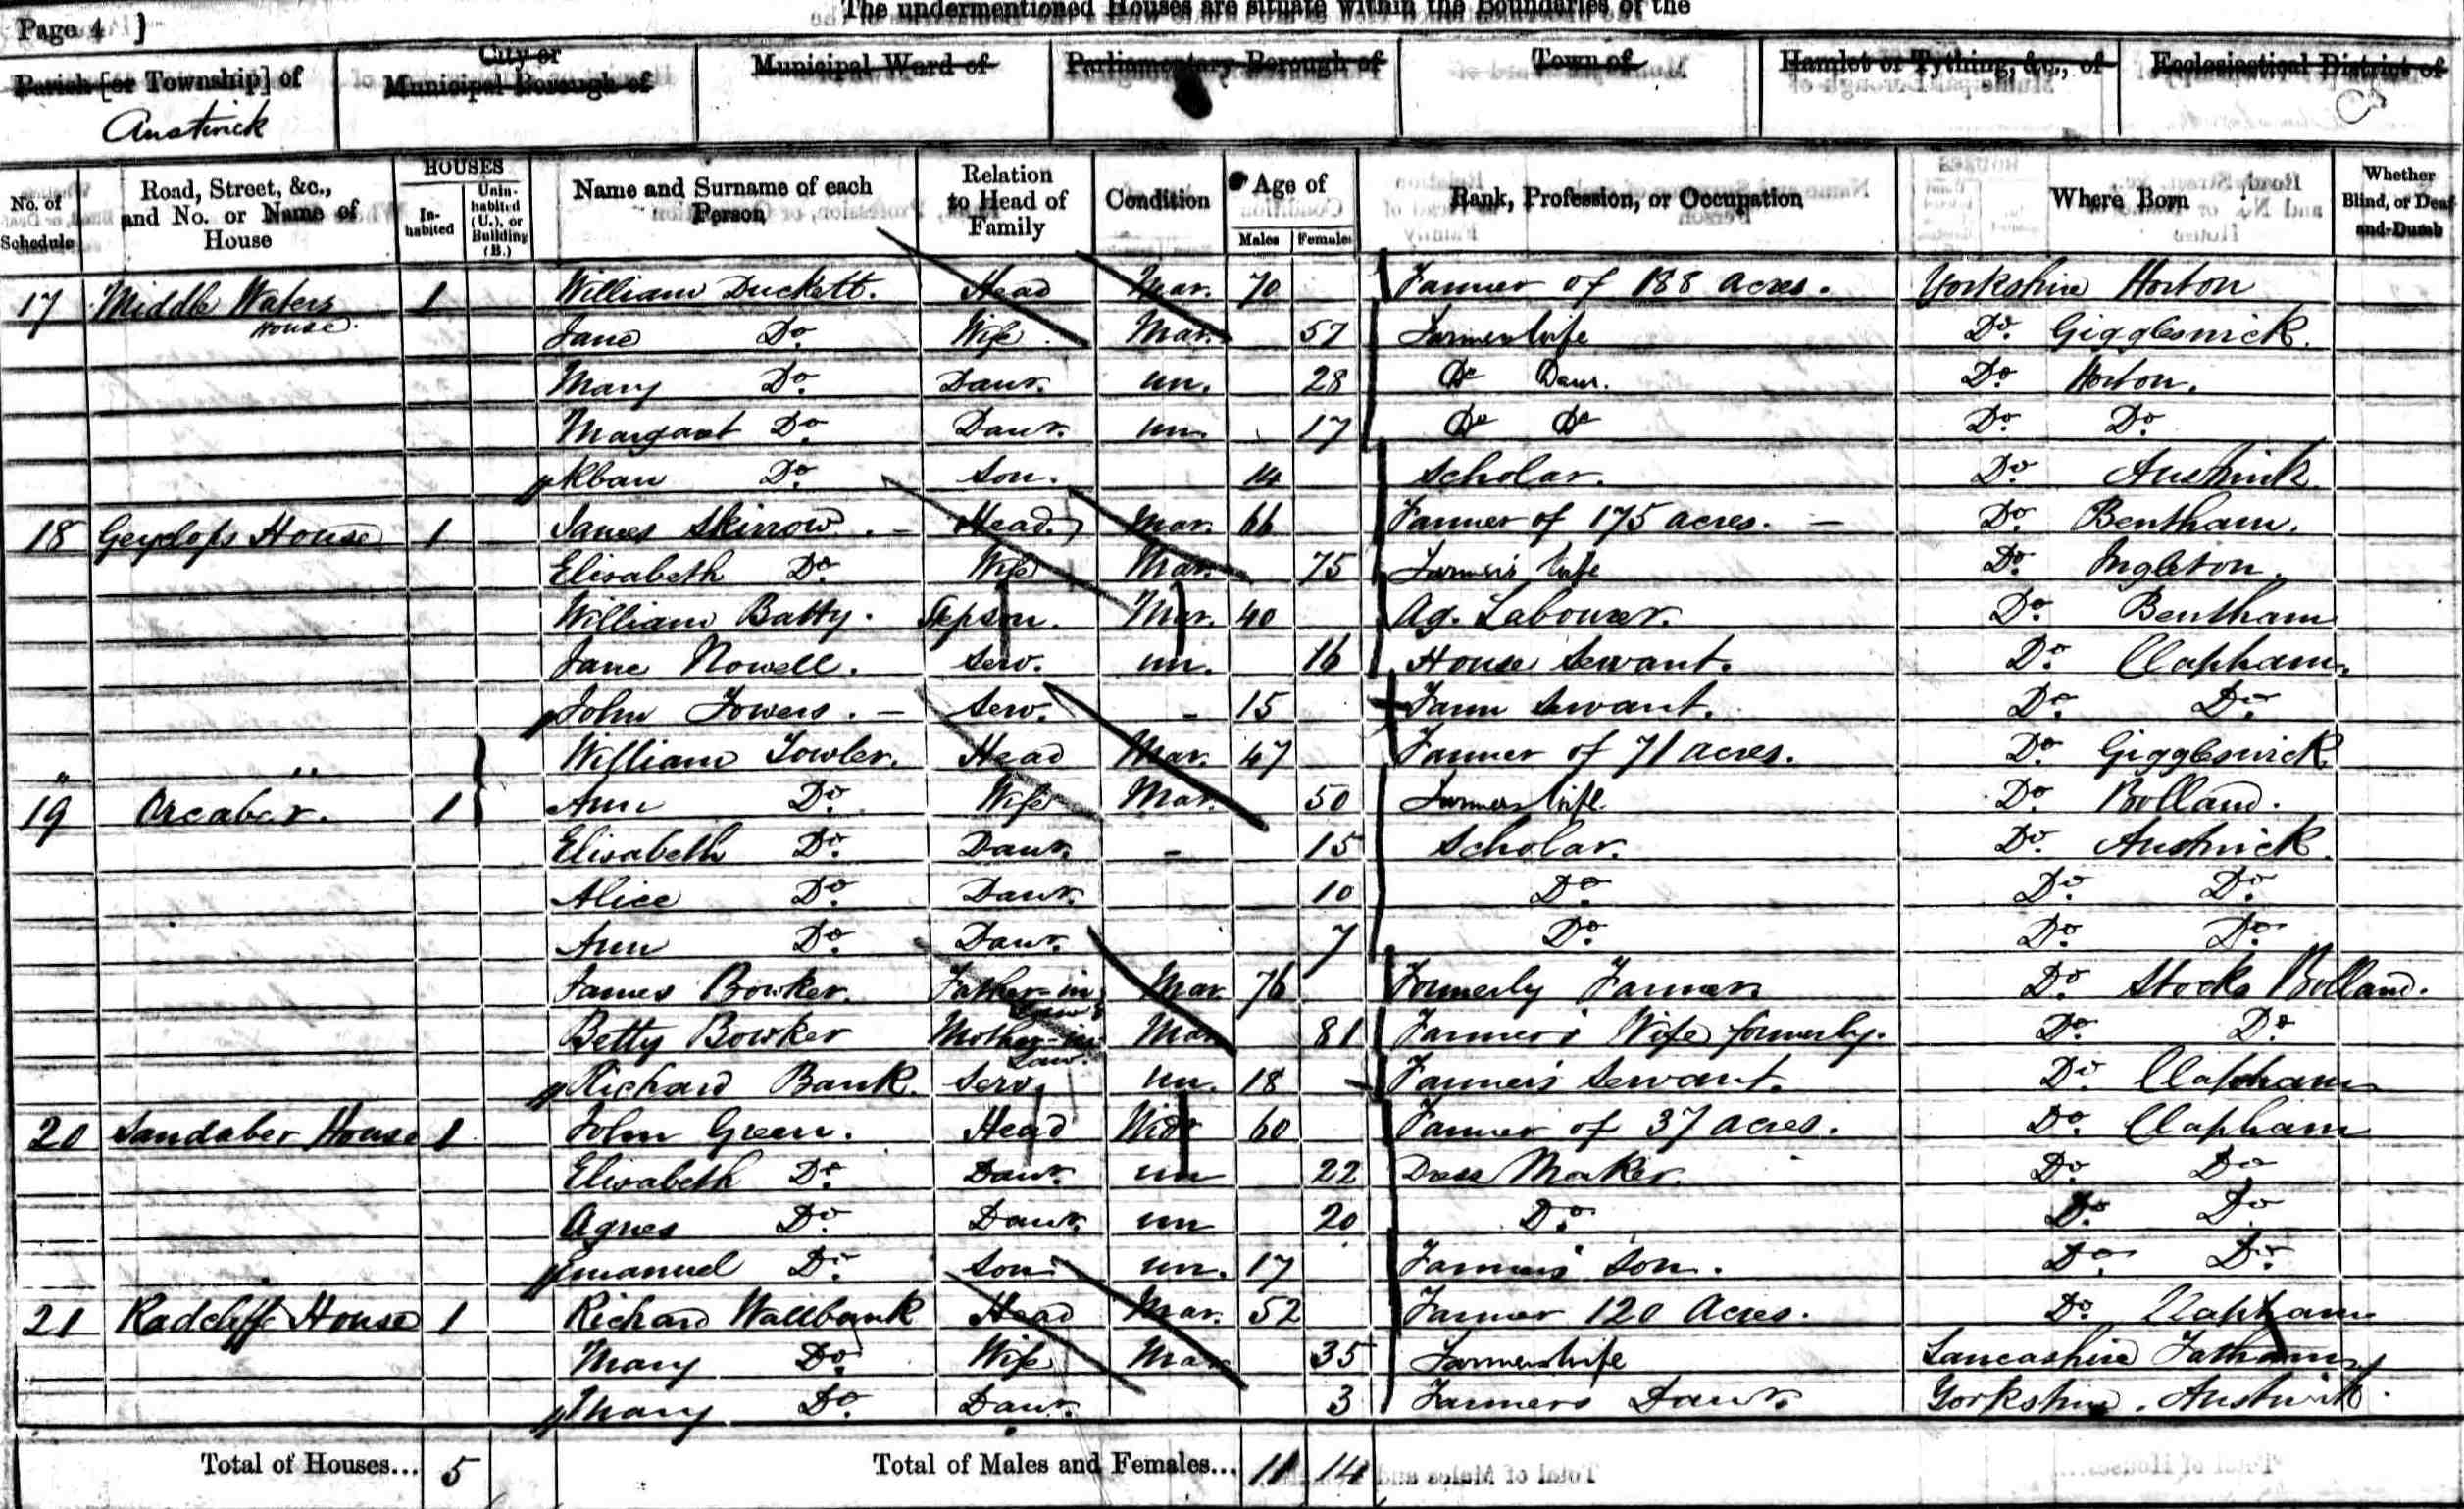 The undermentioned Houses are situate within the Boundaries of the
Page 4 ]
Parish [or Township] of
Austwick
City or Municipal Borough of
Municipal Ward of
Parliamentary Borough of
Town of
Hamlet or Tything, &c., of
Ecclesiastical District of
No. of Schedule
Road, Street, &c., and No. or Name of House
HOUSES
In-habited
Unin-habited (U.), or Building (B.)
Name and Surname of each Person
Relation to Head of Family
Condition
Age of
Males
Females
Rank, Profession, or Occupation
Where Born
Whether Blind, or Deaf-and-Dumb
17 Middle Waters House. 1 William Duckett. Head Mar. 70 Farmer of 188 acres. Yorkshire Horton
Jane Do. Wife Mar. 57 Farmers wife Do. Giggleswick.
Mary Do. Daur. un. 28 Do Daur. Do. Horton.
Margaret Do. Daur. un. 17 Do Do Do. Do.
Do. Son. 14 Scholar. Do. Austwick
18 House 1 James Skirrow. - Head. Mar. 66 Farmer of 175 acres. - Do. Bentham.
Elisabeth Do. Wife Mar. 75 Farmer's wife Do. Ingleton.
William Batty. Stepson. Mar. 40 Ag. Labourer. Do. Bentham
Jane Nowell. Serv. un. 16 House Servant. Do. Clapham.
John Towers. - Serv. - 15 Farm Servant. Do. Do.
" " William Towler. Head Mar. 47 Farmer of 71 acres. Do. Giggleswick
19 Orcaber. 1 Ann Do. Wife Mar. 50 Farmers wife Do. Bolland.
Elisabeth Do. Daur. - 15 Scholar. Do. Austwick.
Alice Do. Daur. 10 Do. Do. Do.
Ann Do. Daur. 7 Do. Do. Do.
James Bowker. Father-in-Law Mar. 76 Formerly Farmer Do. Stocks Bolland.
Betty Bowker Mother-in-Law Mar 81 Farmer's Wife formerly. Do. Do.
Richard Bank. Serv. un. 18 Farmer's Servant. Do. Clapham
20 Sandaber House 1 John Green. Head Widr 60 Farmer of 37 acres. Do. Clapham
Elisabeth Do. Daur. un 22 Dress Maker. Do. Do
Agnes Do. Daur. un 20 Do. Do. Do
Emanuel Do. Son un. 17 Farmer's Son. Do. Do.
21 Radcliffe House 1 Richard Wallbank Head Mar. 52 Farmer 120 Acres. Do. Clapham
Mary Do. Wife Mar 35 Farmers wife Lancashire Tatham
Mary Do. Daur. 3 Farmers Daur. Yorkshire. Austwick.
Total of Houses... 5 Total of Males and Females... 11 14